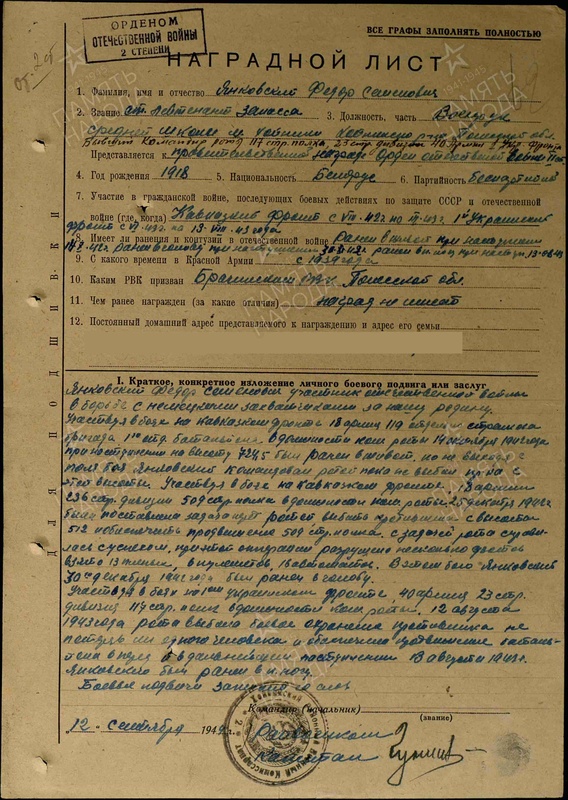 ОРДЕНОМ
ОТЕЧЕСТВЕННОЙ ВОЙНЫ
2 СТЕПЕНИ
ВСЕ ГРАФЫ ЗАПОЛНЯТЬ ПОЛНОСТЬЮ
НАГРАДНОЙ ЛИСТ
1. Фамилия, имя и отчество Янковский Федор Семенович
2. Звание ст. лейтенант запаса 3. Должность, часть Военрук
средней школы м. Хойники Хойникского р-на Полесской обл.
Бывший командир роты 117 стр. полка, 23 стр. дивизии 40 Армии 1 Укр. Фронта
Представляется к правительственной награде Орден отечественной войны II ст.
4. Год рождения 1918 5. Национальность Белорус 6. Партийность Беспартийный
7. Участие в гражданской войне, последующих боевых действиях по защите СССР и отечественной
войне (где, когда) Кавказский фронт с 1й Украинский
фронт с по 13-VIII-43 года
8. Имеет ли ранения и контузии в отечественной войне Ранен в живот при наступлении
ранен в голову при наступлении 30-XII-42г ранен в ногу при наступ. 13-08-43
9. С какого времени в Красной Армии с 1939 года
10. Каким РВК призван Брагинским РВК Полесской обл.
11. Чем ранее награжден (за какие отличия) наград не имеет
12. Постоянный домашний адрес представляемого к награждению и адрес его семьи
ДЛЯ ПОДШИВКИ
I. Краткое, конкретное изложение личного боевого подвига или заслуг
Янковский Федор Семенович участник отечественной войны
в борьбе с немецкими захватчиками за нашу родину.
Участвуя в боях на Кавказском фронте 18 армии 119 отдел. стрелковая
бригада 1ый отд. батальон в должности ком. роты 14 октября 1942 года
при наступлении на высоту был ранен в живот, но не выходя с
поля боя Янковский командовал ротой пока не выбил пр-ка с
этой высоты. Участвуя в боях на Кавказском фронте 18 армии
236 стр. дивизии 509 стр. полка в должности ком. роты декабря 1942г.
была поставлена задача ротой выбить противника с высоты
512 и обеспечить продвижение 509 стр. полка. С задачей рота справи-
лась с успехом, при этой операции разрушено несколько дзотов
взято пленных, пулеметов, автоматов. В этом бою Янковский
30го декабря 1942 года был ранен в голову.
Участвуя в боях на 1ом украинском фронте 40 армии 23 стр.
дивизии 117 стр. полк в должности ком. роты. 12 августа
1943 года рота выбила боевое охранение противника не
потеряв ни одного человека и обеспечила продвижение баталь-
она вперед в дальнейшем наступлении 13 августа 1943г.
Янковский был ранен в ногу.
Боевые подвиги записаны со слов
Командир (начальник)
(звание)
12 сентября 194 г. Райвоенком
капитан
ПАМЯТЬ
НАРОДА